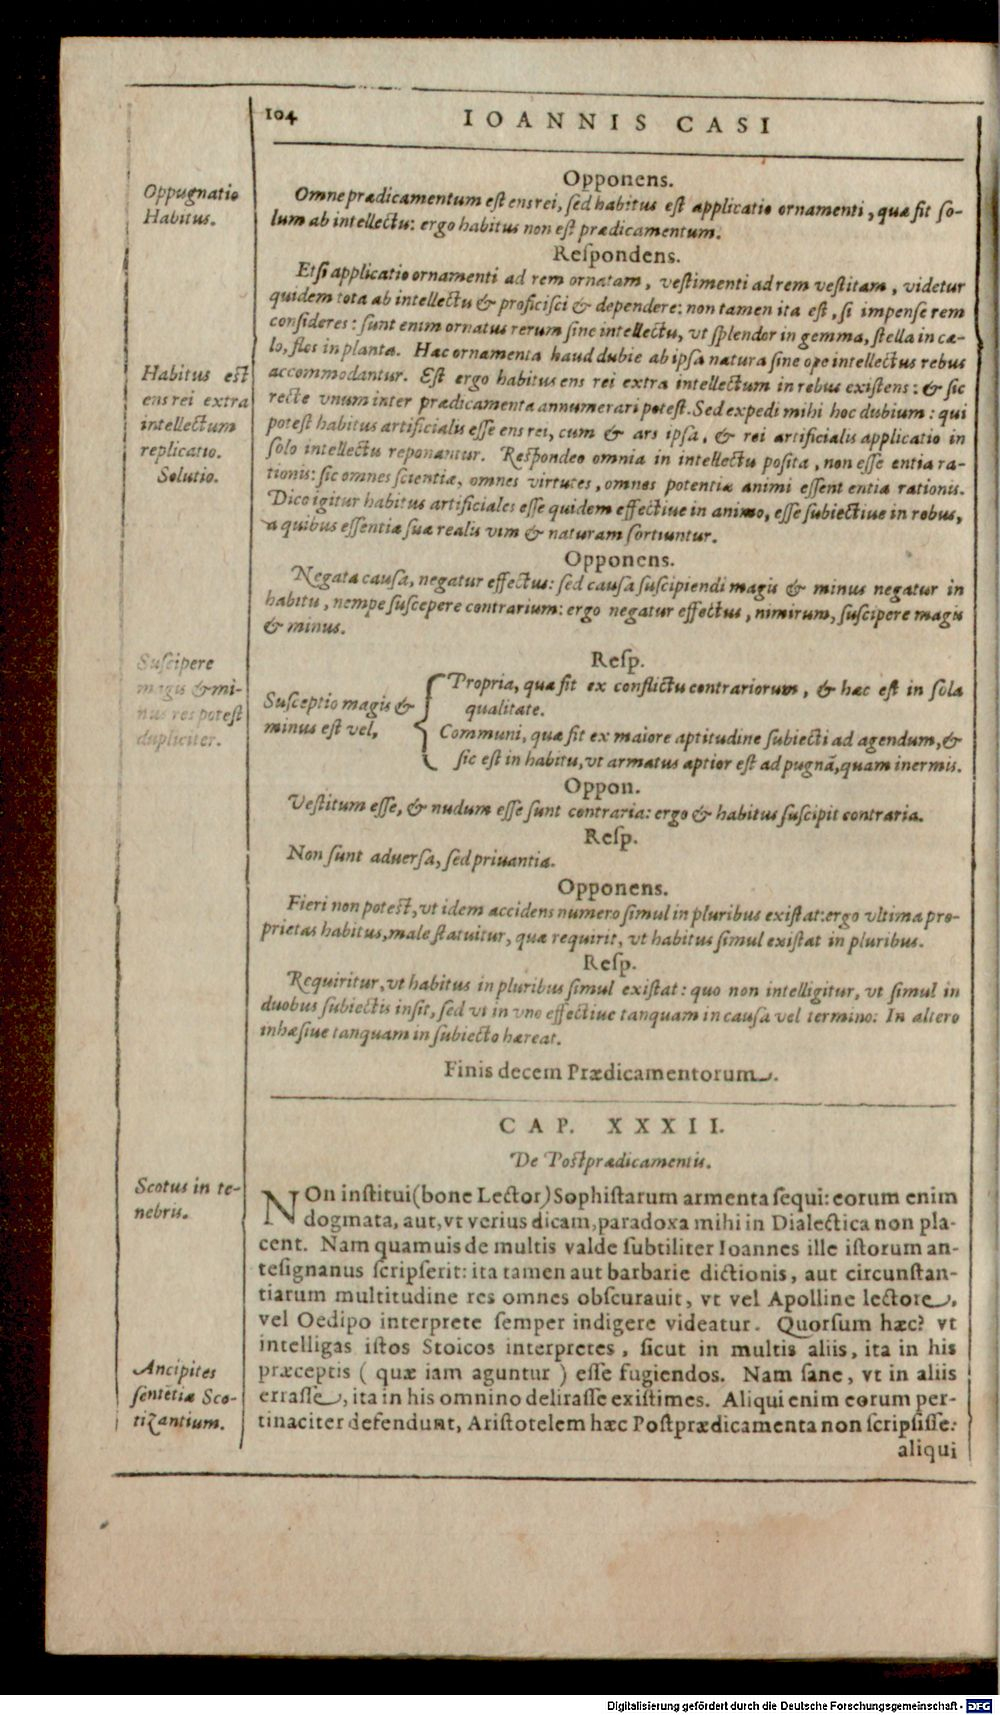 104
IOANNIS CASI
Oppugnatio
Habitus.
Opponens.
Omne prædicamentum est ens rei, sed habitus est applicatio ornamenti, quæ fit so-
lum ab intellectu: ergo habitus non est prædicamentum.
Respondens.
Etsi applicatio ornamenti ad rem ornatam, vestimenti ad rem vestitam, videtur
quidem tota ab intellectu & proficisci & dependere: non tamen ita est, si impense rem
consideres: sunt enim ornatus rerum sine intellectu, vt splendor in gemma, stella in cæ-
lo, flos in planta. Hæc ornamenta haud dubie ab ipsa natura sine ope intellectus rebus
accommodantur. Est ergo habitus ens rei extra intellectum in rebus existens: & sic
recte vnum inter prædicamenta annumerari potest. Sed expedi mihi hoc dubium: qui
potest habitus artificialis esse ens rei, cum & ars ipsa, & rei artificialis applicatio in
solo intellectu reponantur. Respondeo omnia in intellectu posita, non esse entia ra-
tionis: sic omnes scientiæ, omnes virtutes, omnes potentiæ animi essent entia rationis.
Dico igitur habitus artificiales esse quidem effectiue in animo, esse subiectiue in rebus,
a quibus essentiæ suæ realis vim & naturam sortiuntur.
Habitus est
ens rei extra
intellectum
replicatio.
Solutio.
Opponens.
Negata causa, negatur effectus: sed causa suscipiendi magis & minus negatur in
habitu, nempe suscepere contrarium: ergo negatur effectus, nimirum, suscipere magis
& minus.
Suscipere
magis & mi-
nus res potest
dupliciter.
Resp.
Susceptio magis &
minus est vel,
Propria, quæ fit ex conflictu contrariorum, & hæc est in sola
qualitate.
Communi, quæ fit ex maiore aptitudine subiecti ad agendum, &
sic est in habitu, vt armatus aptior est ad pugnã, quam inermis.
Oppon.
Vestitum esse, & nudum esse sunt contraria: ergo & habitus suscipit contraria.
Resp.
Non sunt aduersa, sed priuantia.
Opponens.
Fieri non potest, vt idem accidens numero simul in pluribus existat: ergo vltima pro-
prietas habitus, male statuitur, quæ requirit, vt habitus simul existat in pluribus.
Resp.
Requiritur, vt habitus in pluribus simul existat: quo non intelligitur, vt simul in
duobus subiectis insit, sed vt in vno effectiue tanquam in causa vel termino: In altero
inhæsiue tanquam in subiecto hæreat.
Finis decem Prædicamentorum.
CAP. XXXII.
De Postprædicamentis.
Scotus in te-
nebris.
NOn institui (bone Lector) Sophistarum armenta sequi: eorum enim
dogmata, aut, vt verius dicam, paradoxa mihi in Dialectica non pla-
cent. Nam quamuis de multis valde subtiliter Ioannes ille istorum an-
tesignanus scripserit: ita tamen aut barbarie dictionis, aut circunstan-
tiarum multitudine res omnes obscurauit, vt vel Apolline lectore,
vel Oedipo interprete semper indigere videatur. Quorsum hæc? vt
intelligas istos Stoicos interpretes, sicut in multis aliis, ita in his
præceptis ( quæ iam aguntur ) esse fugiendos. Nam sane, vt in aliis
errasse, ita in his omnino delirasse existimes. Aliqui enim eorum per-
tinaciter defendunt, Aristotelem hæc Postprædicamenta non scripsisse:
Ancipites
sentẽtiæ Sco-
tizantium.
aliqui
Digitalisierung gefördert durch die Deutsche Forschungsgemeinschaft - DFG